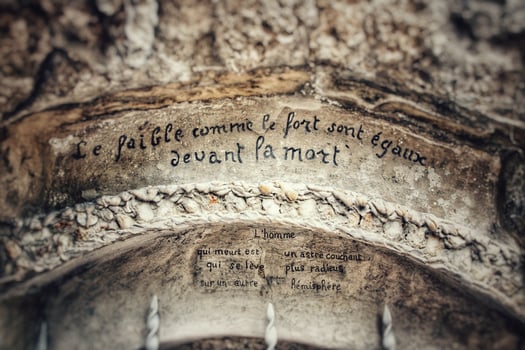 Le faible comme le fort sont égaux
devant la mort
L'homme
qui meurt est un astre couchant
qui se lève plus radieux
sur un autre hémisphère